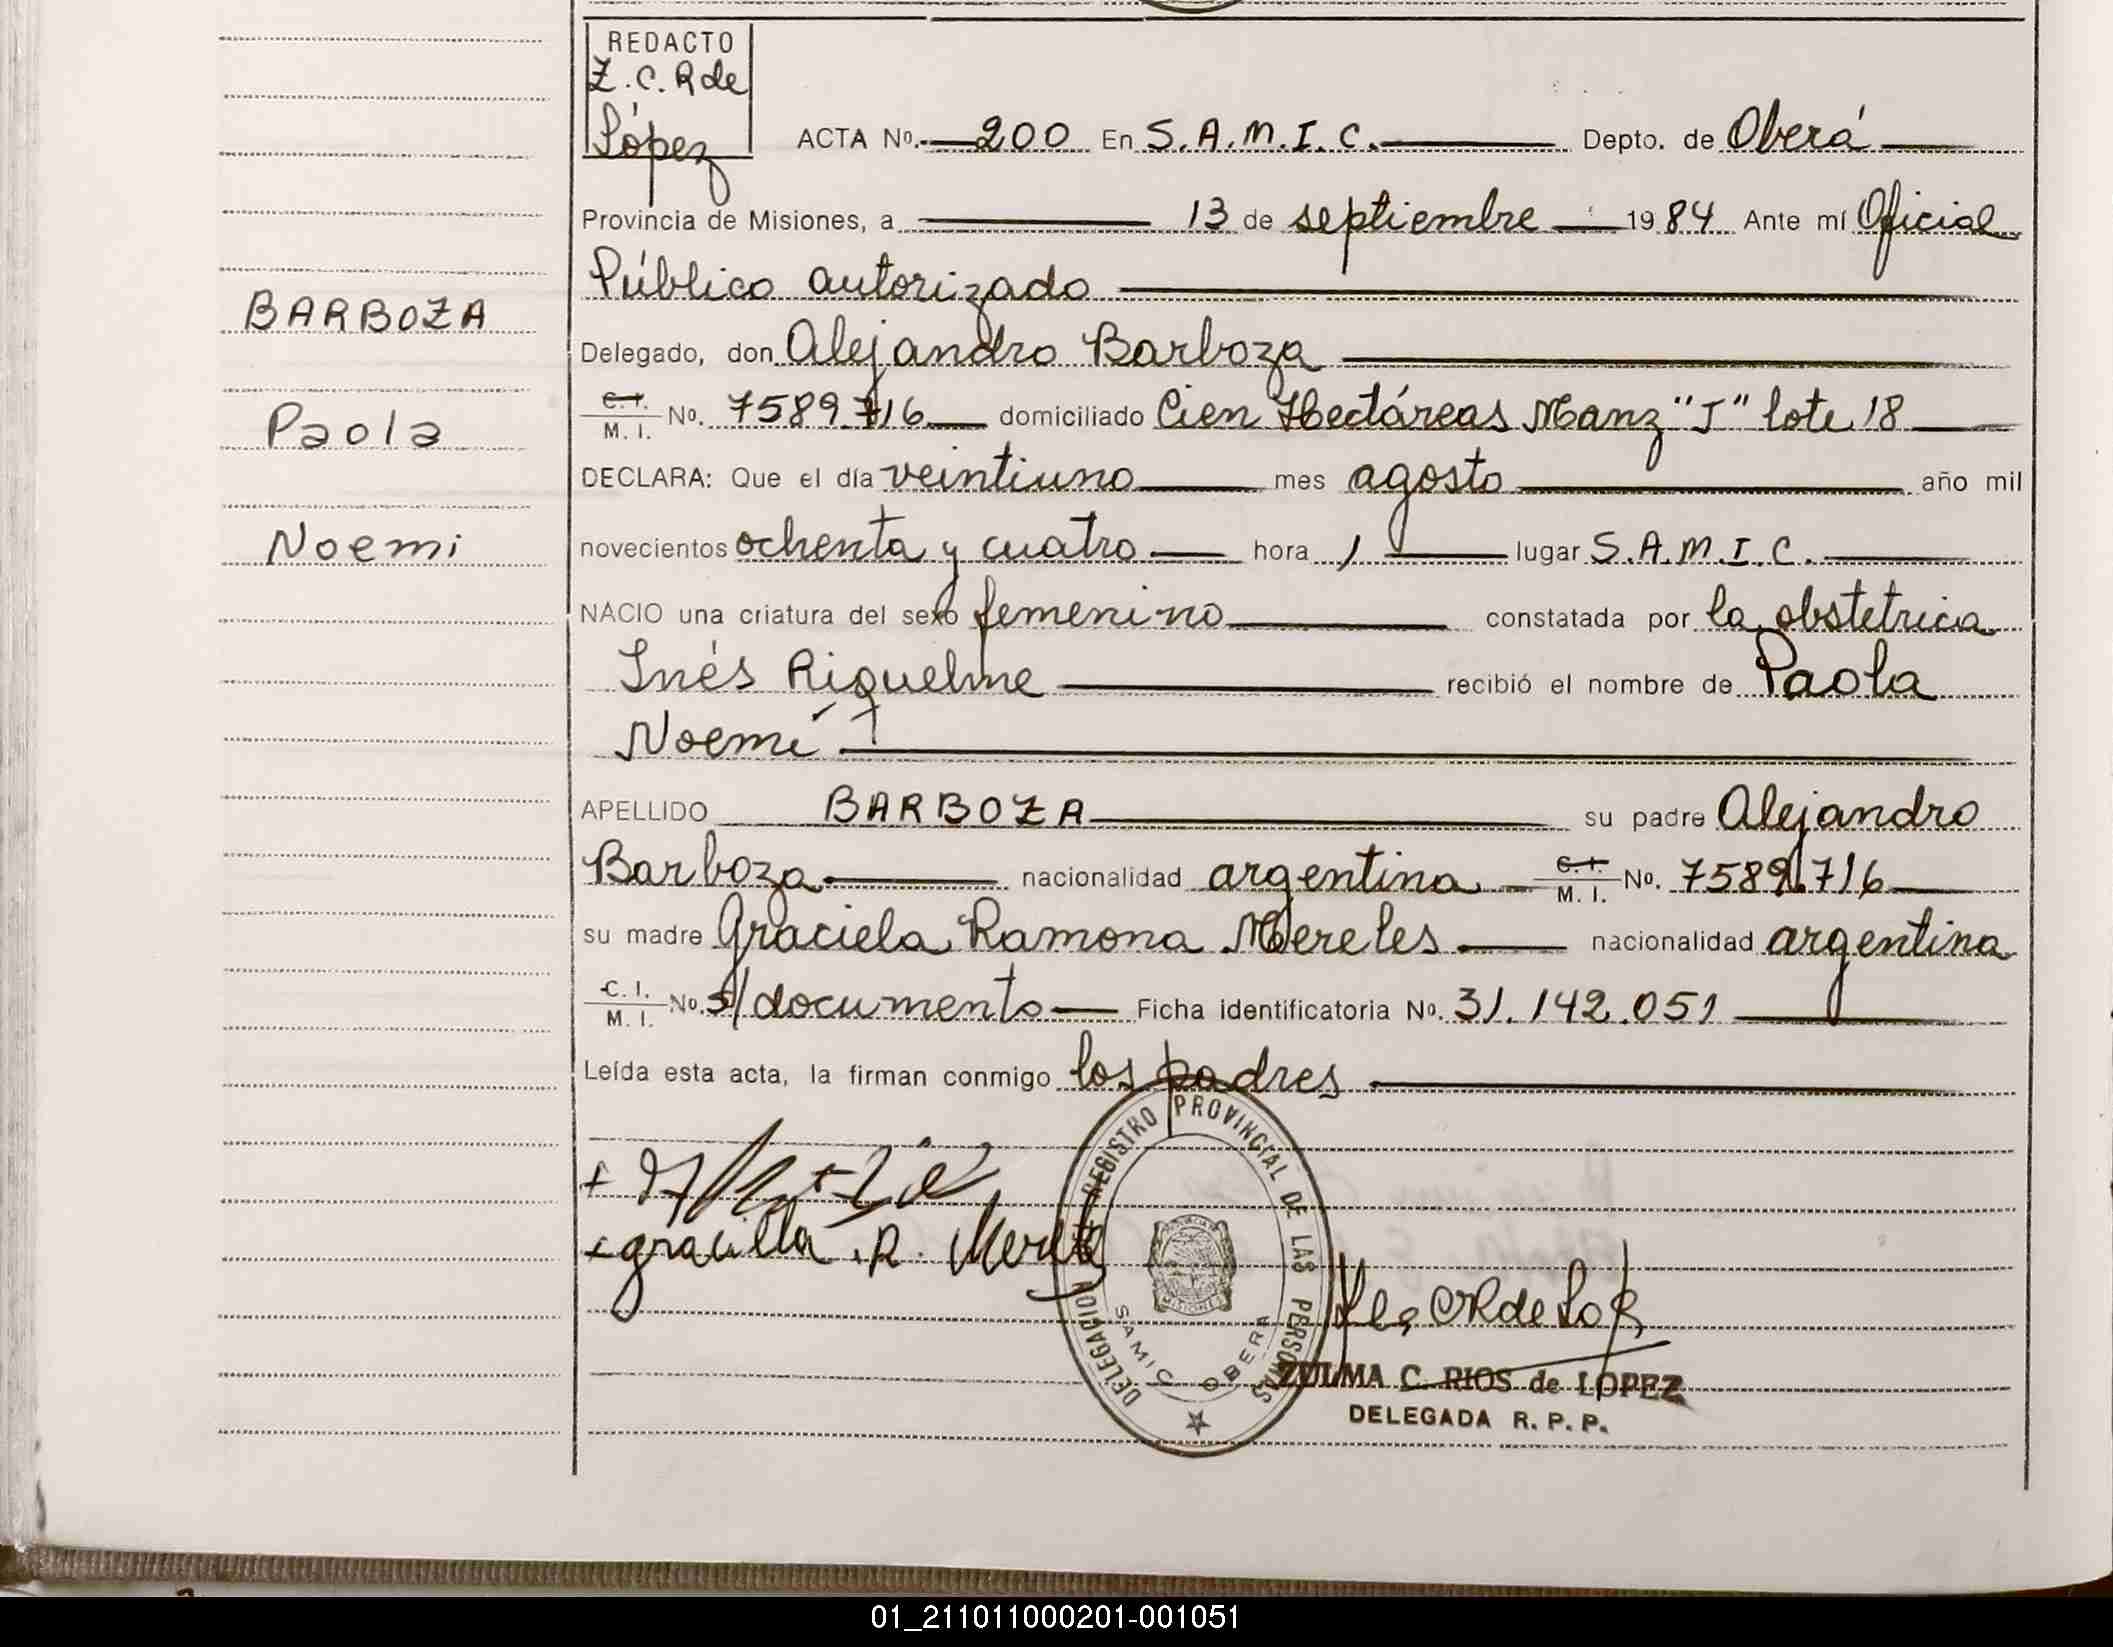 REDACTO
Z. C. R de
López
ACTA Nº. 200 En S.A.M.I.C. Depto. de Oberá
Provincia de Misiones, a 13 de septiembre 1984 Ante mí Oficial
Público autorizado
BARBOZA
Delegado, don Alejandro Barboza
C. I. M. I. Nº. 7589.716 domiciliado Cien Hectáreas Manz "J" lote 18
Paola
DECLARA: Que el día veintiuno mes agosto año mil
Noemi
novecientos ochenta y cuatro hora 1 lugar S.A.M.I.C.
NACIO una criatura del sexo femenino constatada por la obstetrica
Inés Riquelme recibió el nombre de Paola
Noemí
APELLIDO BARBOZA su padre Alejandro
Barboza nacionalidad argentina C. I. M. I. Nº. 7589.716
su madre Graciela Ramona Mereles nacionalidad argentina
C. I. M. I. Nº. s/documento Ficha identificatoria Nº. 31.142.051
Leída esta acta, la firman conmigo los padres
REGISTRO PROVINCIAL DE LAS PERSONAS
DELEGACION
SAMIC OBERA
MISIONES
+
+ graciella .R. Mereles
ZULMA C. RIOS de LOPEZ
DELEGADA R. P. P.
01_211011000201-001051